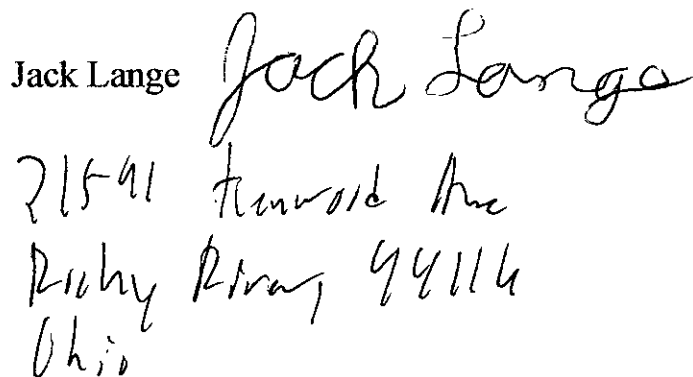 Jack Lange Jack Lange
21591 Kenwood Ave
Rocky River, 44116
Ohio